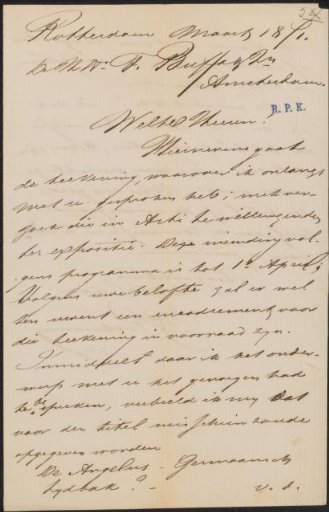 Rotterdam Maart 18/1.
de H.H. F. Buffa & Zn
Amsterdam.
R.P.K.
WelEd. Heeren!
Hiernevens gaat
de teekening, waarover ik onlangs
met u gesproken heb; met ver-
zoek die in Arti te willen zenden
ter expositie. Deze inzending vol-
gens programma is tot 1e April.
Volgens uwe belofte zal er wel
ten uwent een encadrement voor
die teekening in voorraad zyn.
Inmiddels daar ik het onder-
werp met u het genoegen had
te bespreken, verbeeld ik my dat
voor den titel misschien zoude
opgegeven worden
De Angelus - Germaansch
tydvak? - v. s.